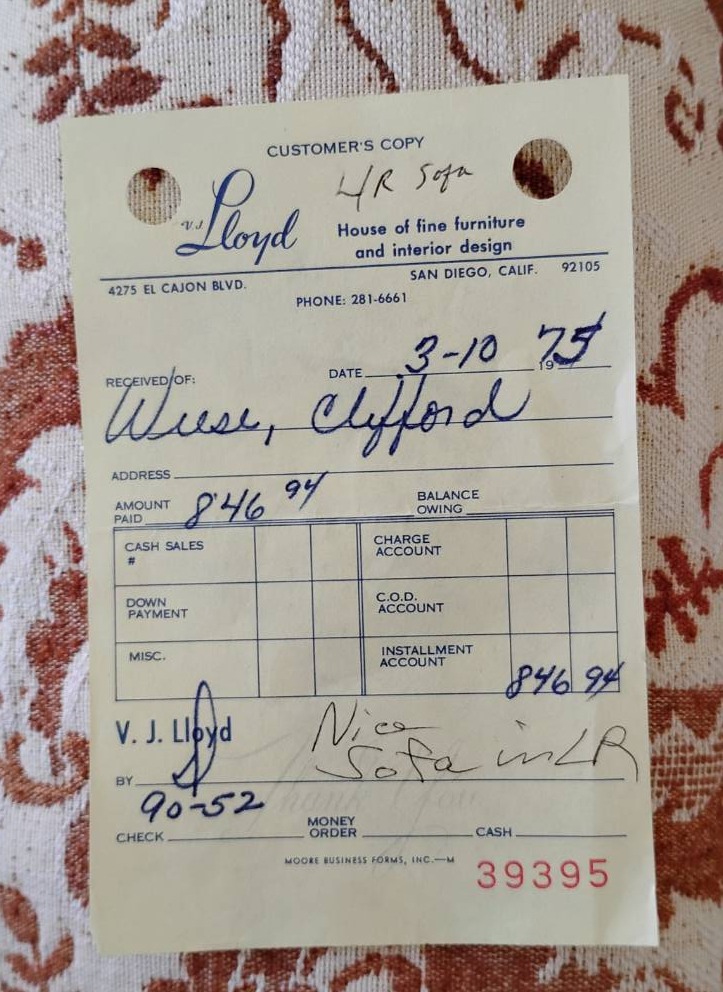 CUSTOMER'S COPY
L/R Sofa
V.J. Lloyd
House of fine furniture
and interior design
4275 EL CAJON BLVD. SAN DIEGO, CALIF. 92105
PHONE: 281-6661
DATE 3-10 1975
RECEIVED OF:
Wiese, Clifford
ADDRESS
AMOUNT PAID 846 94 BALANCE OWING
CASH SALES # CHARGE ACCOUNT
DOWN PAYMENT C.O.D. ACCOUNT
MISC. INSTALLMENT ACCOUNT 846 94
V. J. Lloyd Nice
Sofa in LR
BY
Thank You
90-52
CHECK MONEY ORDER CASH
MOORE BUSINESS FORMS, INC.—M
39395